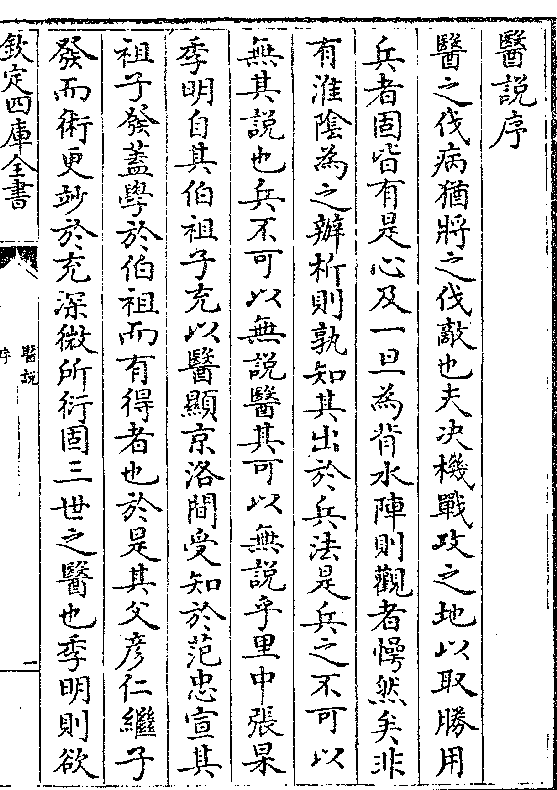 醫說序
醫之伐病猶將之伐敵也夫决機戰攻之地以取勝用
兵者固皆有是心及一旦為背水陣則觀者愕然矣非
有淮陰為之辦析則孰知其出於兵法是兵之不可以
無其說也兵不可以無說醫其可以無說乎里中張杲
季明自其伯祖子充以醫顯京洛間受知於范忠宣其
祖子發蓋學於伯祖而有得者也於是其父彦仁繼子
發而術更妙於充深微所衍固三世之醫也季明則欲
欽定四庫全書
醫說
序
一